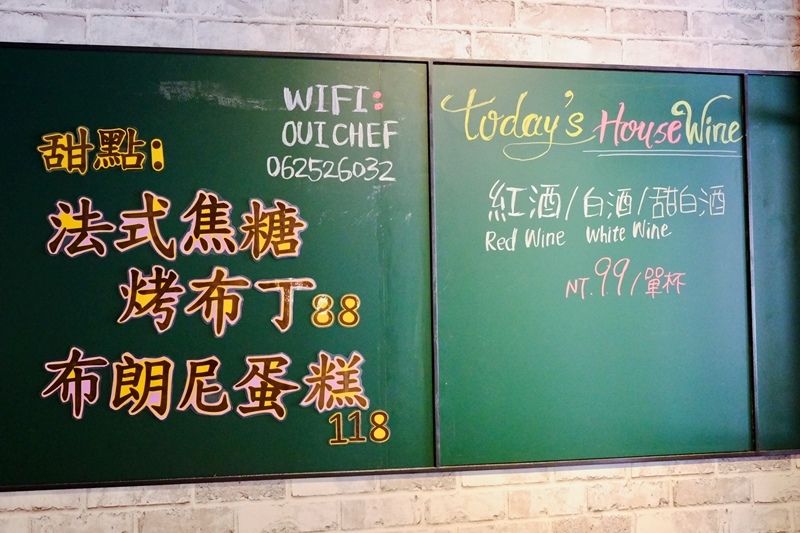 WIFI:
OUI CHEF
062526032
甜點:
法式焦糖
烤布丁88
布朗尼蛋糕
118
Today's House Wine
紅酒/白酒/甜白酒
Red Wine White Wine
NT.99/單杯